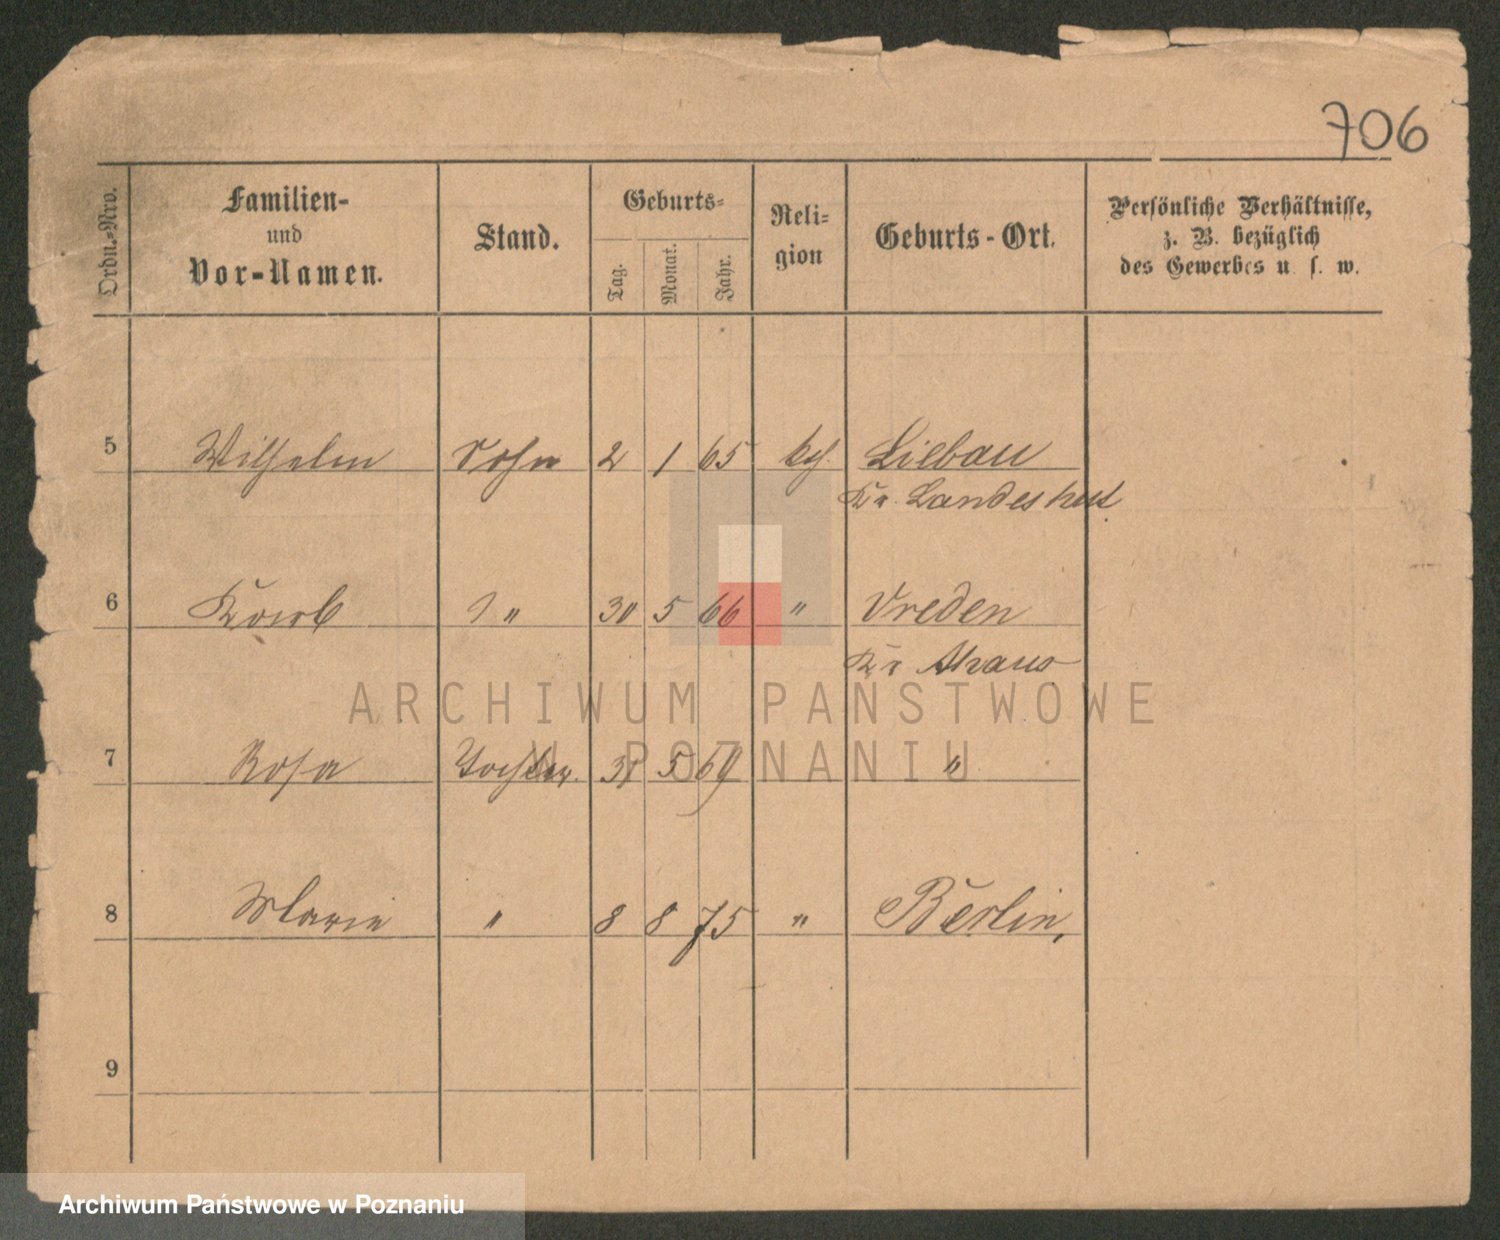 706
Ordn.-Nro.
Familien-
und
Vor-Namen.
Stand.
Geburts-
Tag.
Monat.
Jahr.
Reli-
gion
Geburts-Ort.
Persönliche Verhältnisse,
z. B. bezüglich
des Gewerbes u. s. w.
5 Wilhelm Sohn 2 1 65 Liebau
Kr. Landeshut
6 " 30 5 66 " Vreden
Kr Ahaus
7 Rosa Tochter. 5 69 "
8 Marie " 8 8 75 " Berlin,
9
ARCHIWUM PAŃSTWOWE
W POZNANIU
Archiwum Państwowe w Poznaniu